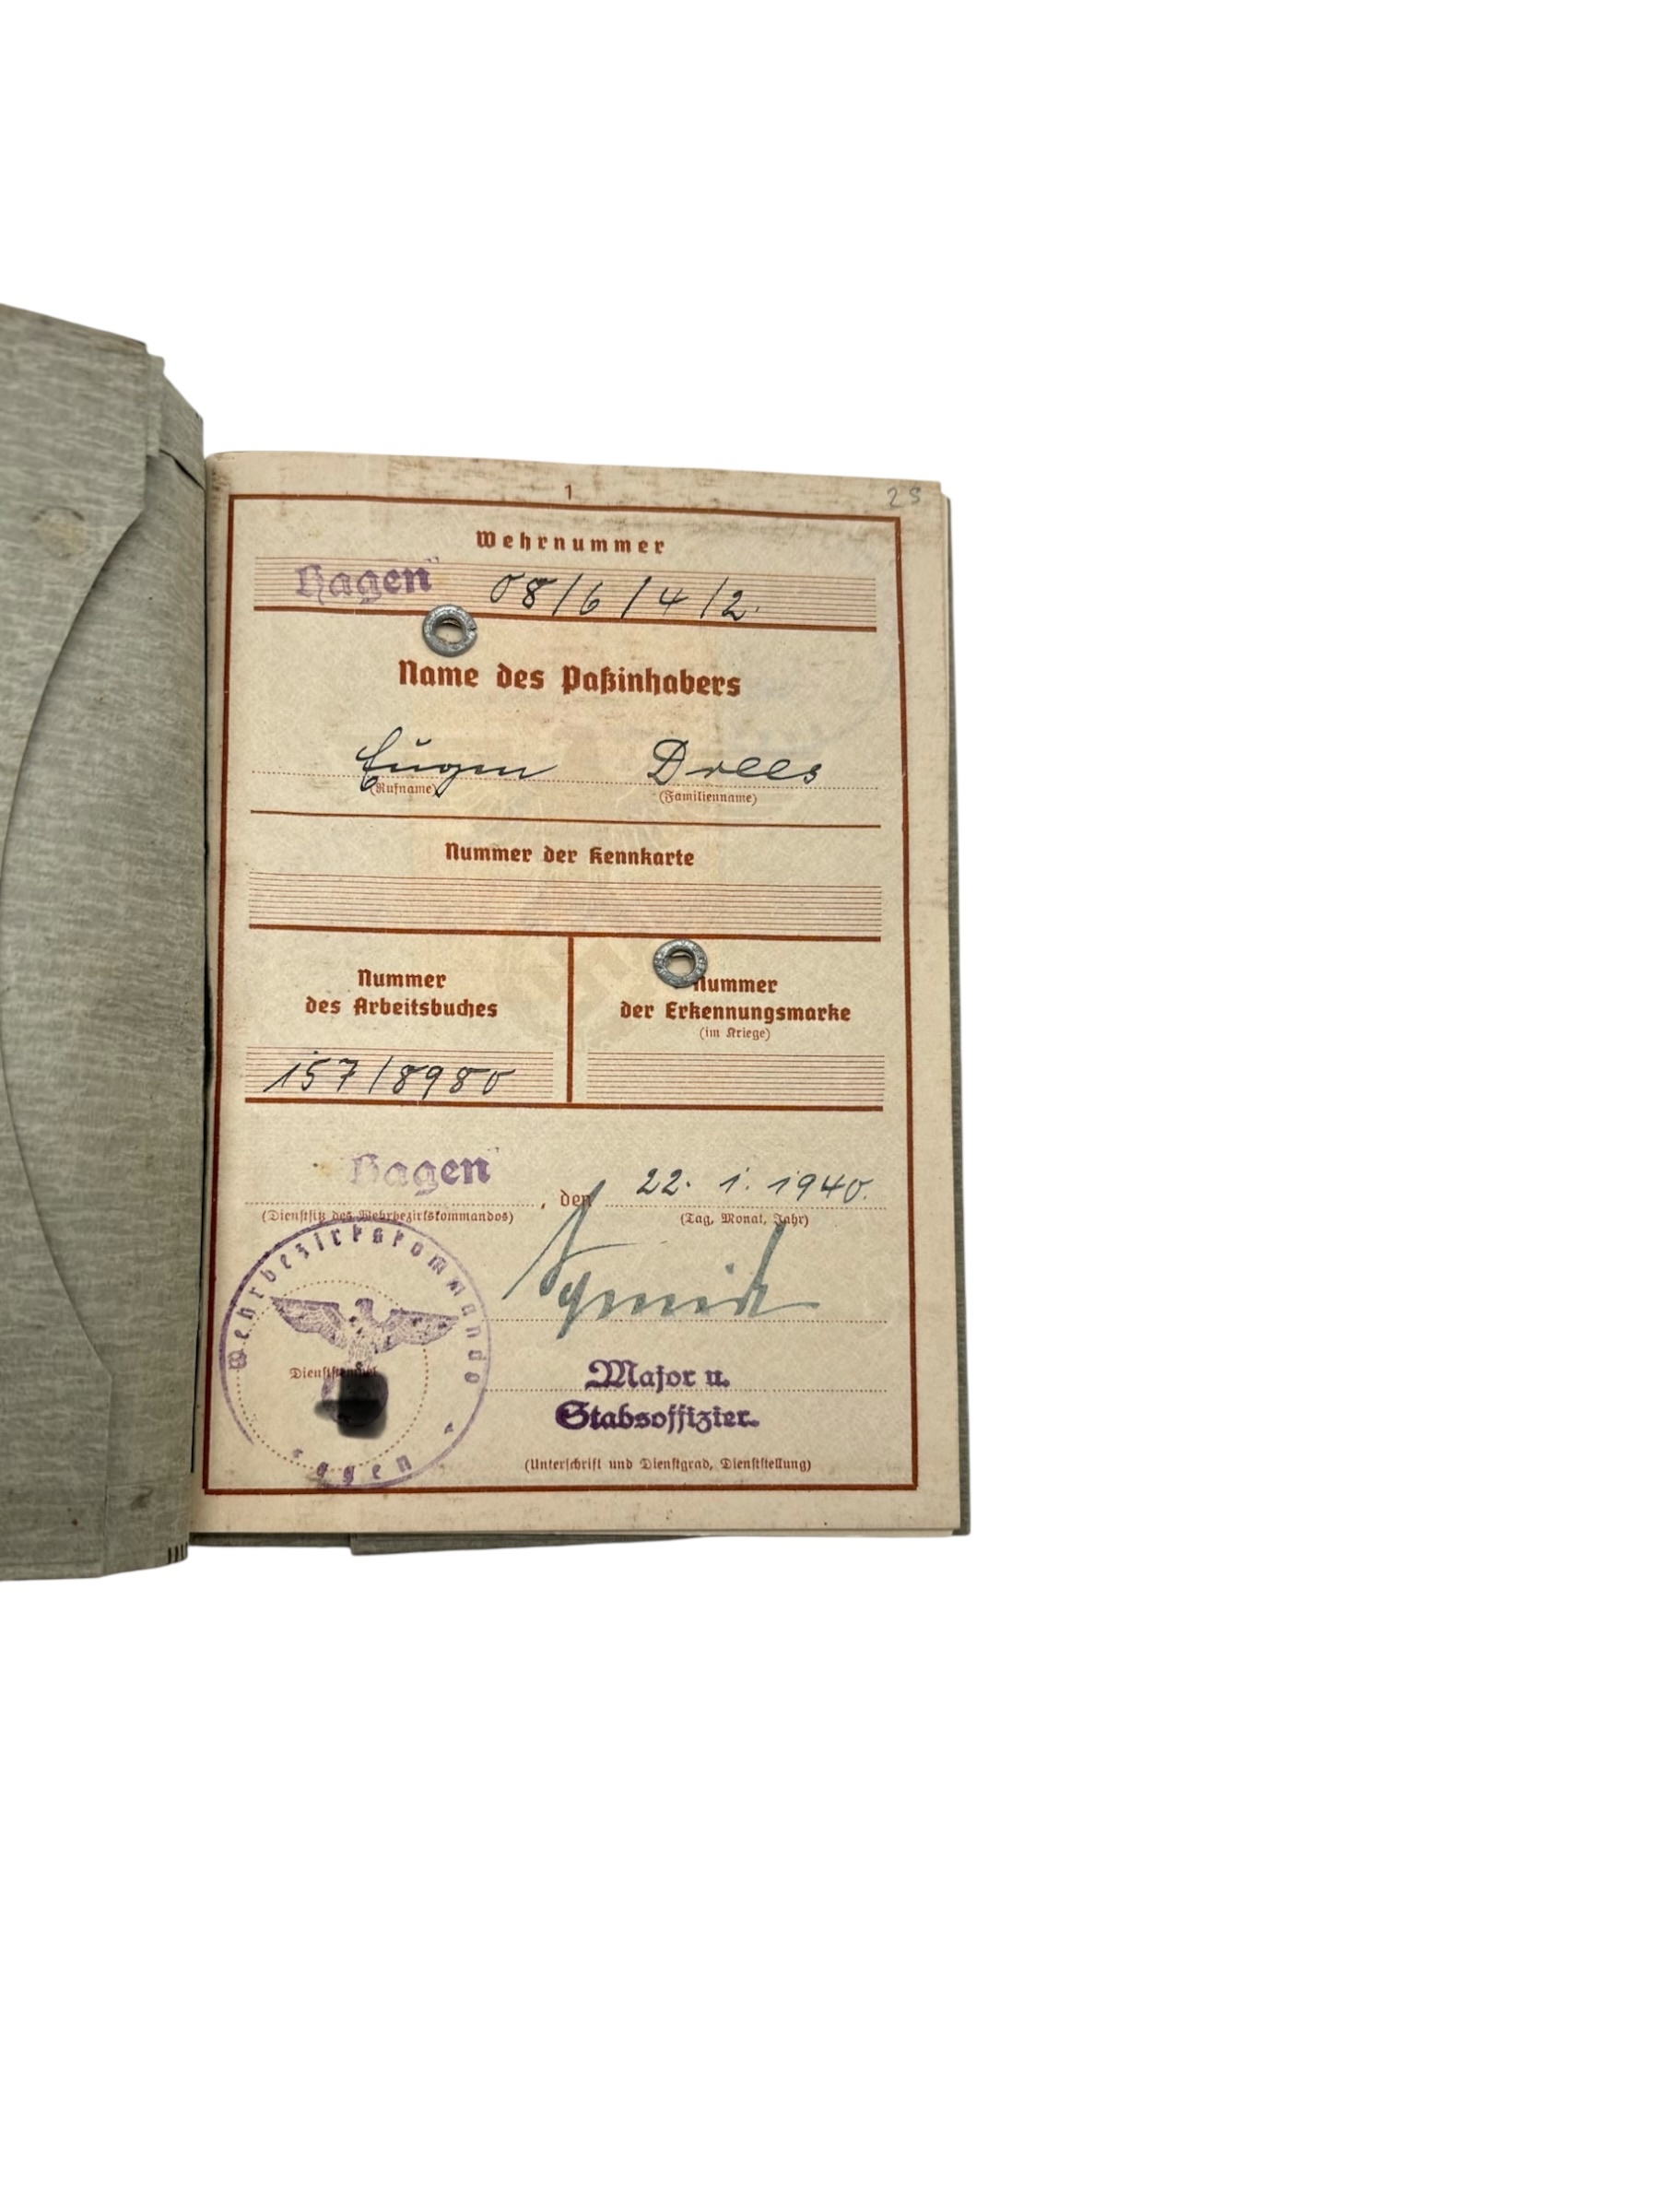 1
25
Wehrnummer
Hagen 08/6/4/2.
Name des Paßinhabers
Eugen Drees
(Rufname) (Familienname)
Nummer der Kennkarte
Nummer
des Arbeitsbuches
Nummer
der Erkennungsmarke
(im Kriege)
157/8980
Hagen, den 22. 1. 1940.
(Dienstsitz des Wehrbezirkskommandos) (Tag, Monat, Jahr)
Wehrbezirkskommando
Dienststempel
Hagen
Major u.
Stabsoffizier.
(Unterschrift und Dienstgrad, Dienststellung)